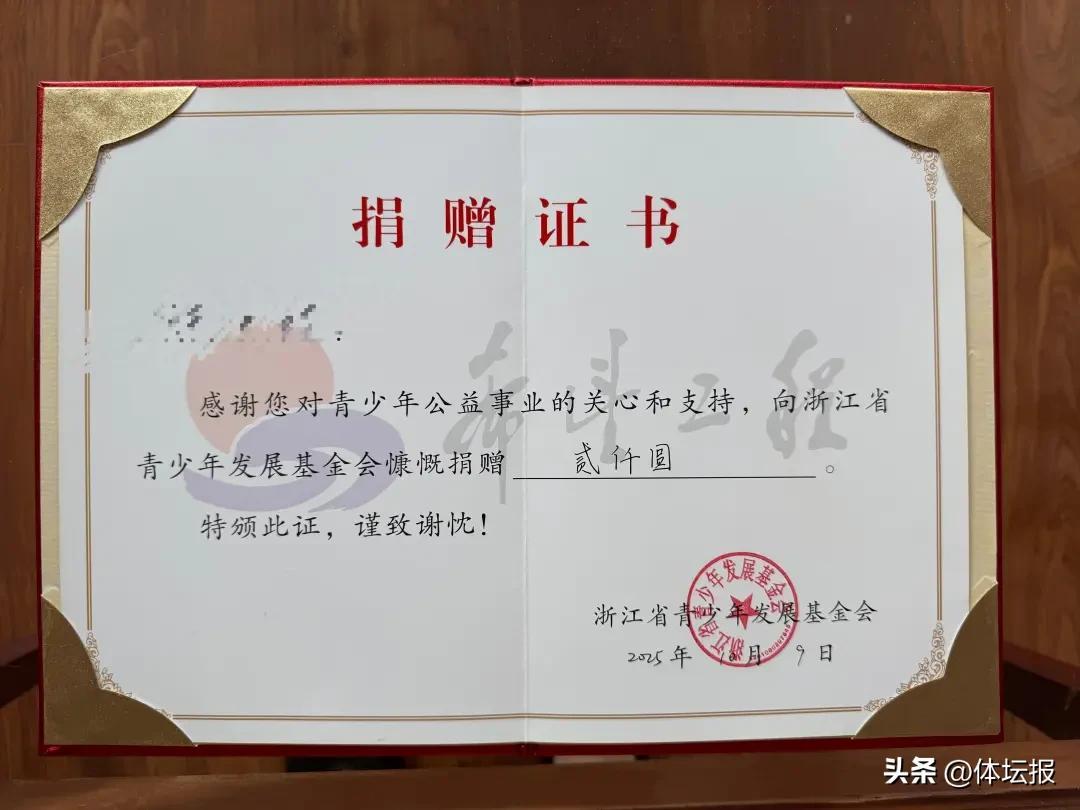 捐赠证书
希望工程
感谢您对青少年公益事业的关心和支持，向浙江省
青少年发展基金会慷慨捐赠 贰仟圆 。
特颁此证，谨致谢忱！
浙江省青少年发展基金会
浙江省青少年发展基金会
2025年 10月 9日
头条 @体坛报